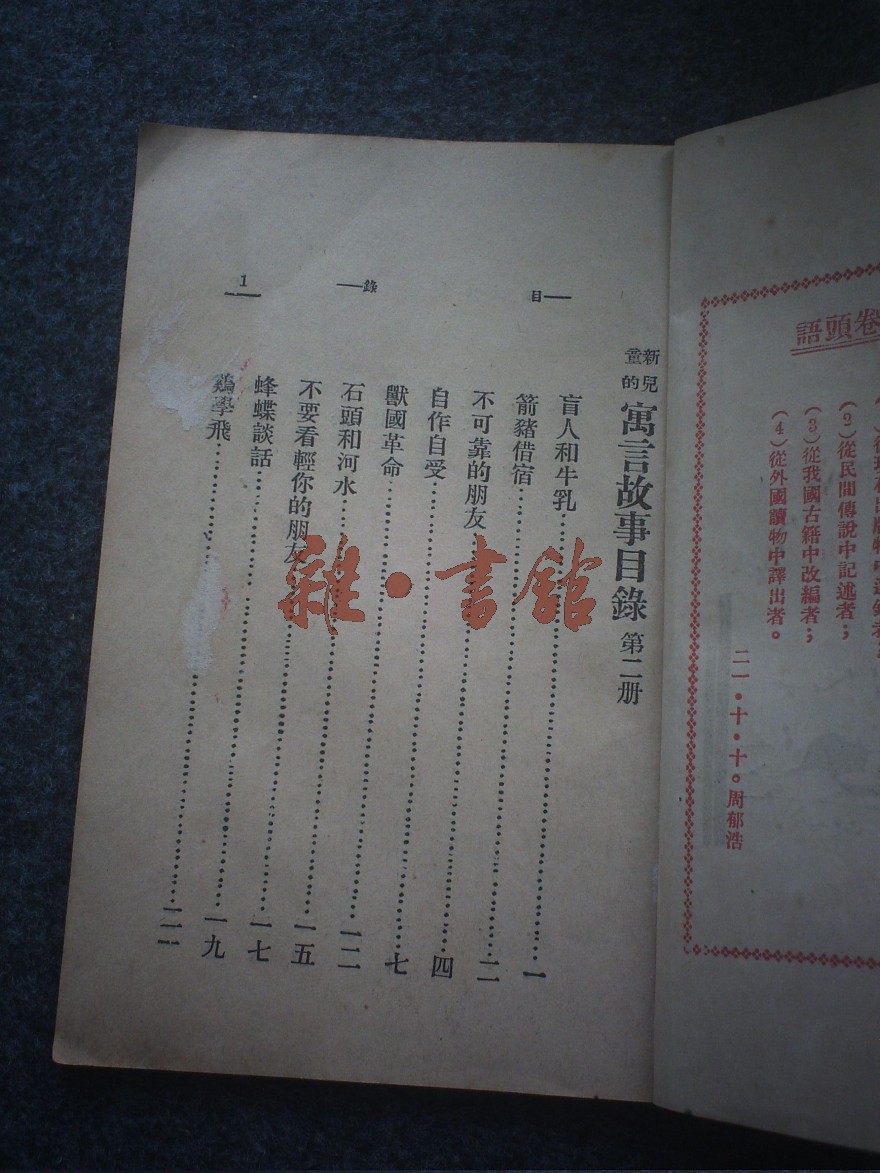 卷頭語
(2)從民間傳說中記述者；
(3)從我國古籍中改編者；
(4)從外國讀物中譯出者。
二一・十・十。周郁浩
新兒童的寓言故事目錄 第二册
目
錄
1
盲人和牛乳…………一
箭豬借宿…………二
不可靠的朋友…………四
自作自受…………七
獸國革命…………一二
石頭和河水…………一五
不要看輕你的朋友…………一七
蜂蝶談話…………一九
鷄學飛…………
雜・書館